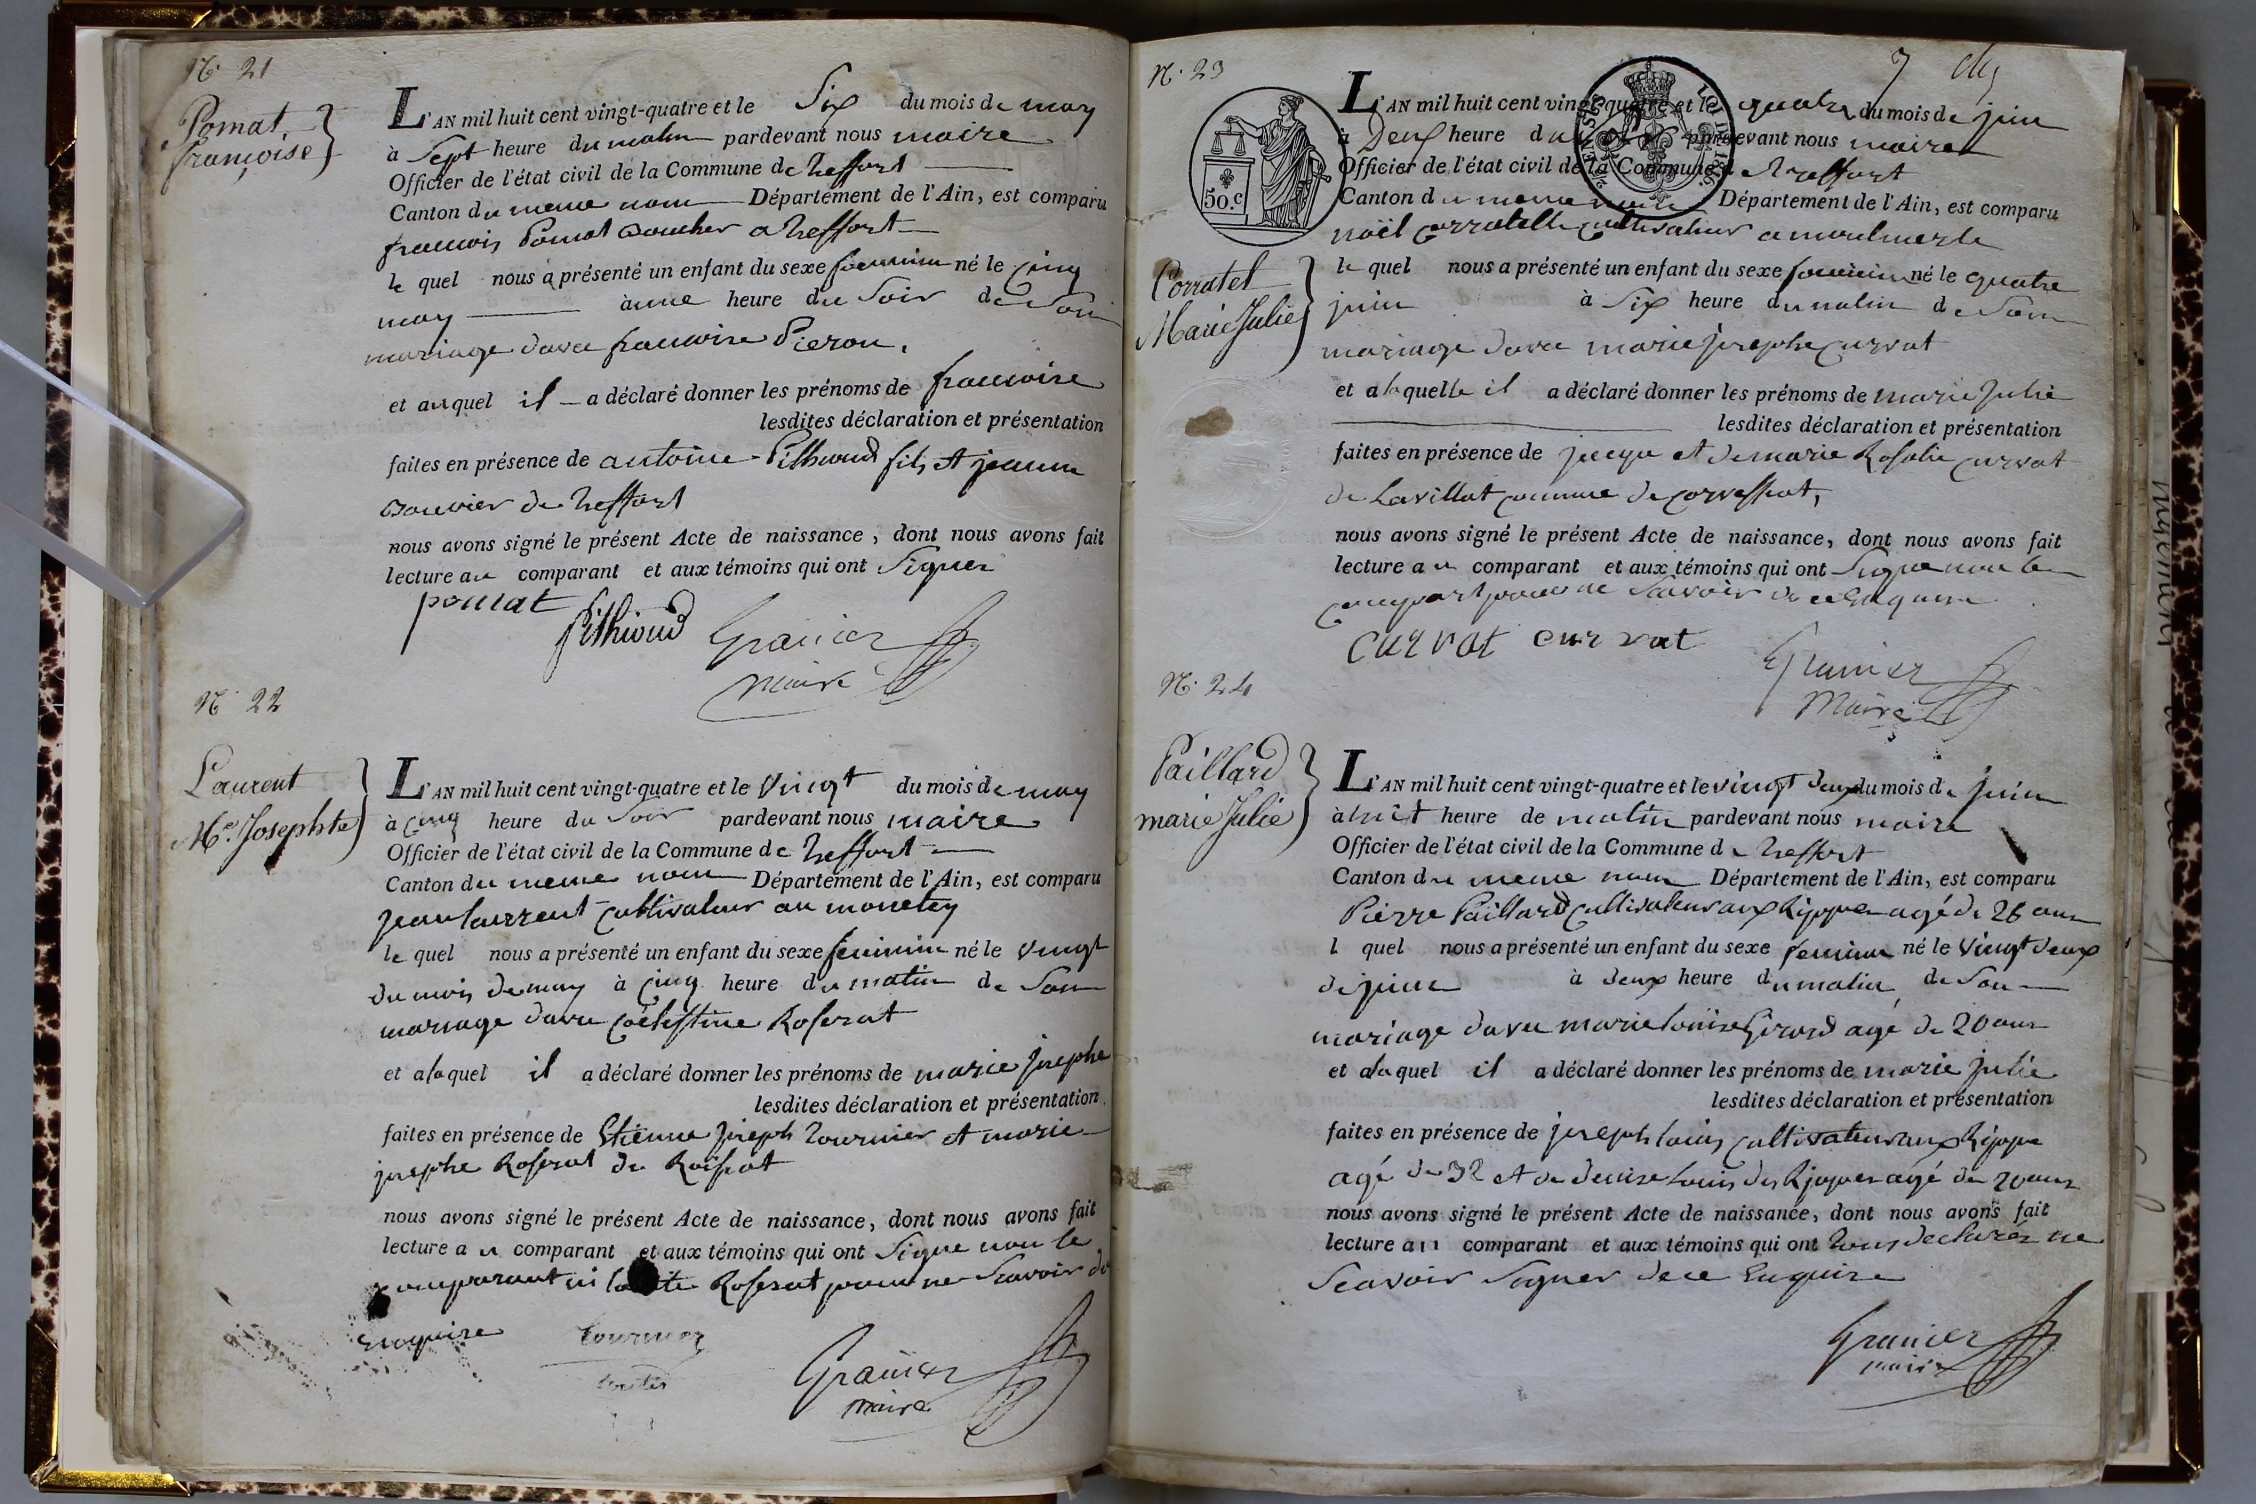 N.° 21
Pomat,
françoise
L'AN mil huit cent vingt-quatre et le Six du mois de may
à Sept heure du matin pardevant nous maire
Officier de l'état civil de la Commune de treffort
Canton du meme nom Département de l'Ain, est comparu
francois Pomat Boucher a treffort
le quel nous a présenté un enfant du sexe feminin né le cinq
may à une heure du Soir de Son
mariage davec francoise Pieron.
et auquel il a déclaré donner les prénoms de francoise
lesdites déclaration et présentation
faites en présence de antoine Pithioud fils et jeanne
Bouvier de treffort
nous avons signé le présent Acte de naissance, dont nous avons fait
lecture au comparant et aux témoins qui ont Signer
pomat
Pithioud Granier
maire
N.° 22
Laurent
M.ie Josephte
L'AN mil huit cent vingt-quatre et le Vingt du mois de may
à cinq heure du Soir pardevant nous maire
Officier de l'état civil de la Commune de treffort
Canton du meme nom Département de l'Ain, est comparu
jean laurrent cultivateur au monetey
le quel nous a présenté un enfant du sexe feminin né le vingt
du mois de may à cinq heure du matin de Son
mariage davec coelestine Roserat
et a laquel il a déclaré donner les prénoms de marie josephe
lesdites déclaration et présentation
faites en présence de Etienne joseph tournier et marie
josephe Roserat de Roissiat
nous avons signé le présent Acte de naissance, dont nous avons fait
lecture au comparant et aux témoins qui ont Signe non le
comparant ni Roserat pour ne Scavoir de
Enquire tournier
Granier
maire
N.° 23
7
50.c
L'AN mil huit cent vingt-quatre et le quatre du mois de juin
à Deux heure du pardevant nous maire
Officier de l'état civil de la Commune de treffort
Canton du meme nom Département de l'Ain, est comparu
noël corratelle cultivateur a montmerle
Corratel
Marie Julie
le quel nous a présenté un enfant du sexe feminin né le quatre
juin à Six heure du matin de Son
mariage davec marie josephe curvat
et a laquelle il a déclaré donner les prénoms de marie Julie
lesdites déclaration et présentation
faites en présence de jacque et de marie Rosalie curvat
de Lavillat commune de corvessiat,
nous avons signé le présent Acte de naissance, dont nous avons fait
lecture au comparant et aux témoins qui ont Signe non le
comparant pour ne Scavoir de ce Enquire
curvat curvat
Granier
Maire
N.° 24
Paillard
marie Julie
L'AN mil huit cent vingt-quatre et le vingt deux du mois de juin
à huit heure de matin pardevant nous maire
Officier de l'état civil de la Commune de treffort
Canton du meme nom Département de l'Ain, est comparu
Pierre Paillard cultivateur aux Rippes agé de 26 ans
l quel nous a présenté un enfant du sexe feminin né le Vingt deux
de juin à deux heure du matin de Son
mariage davec marie louise Girard agé de 20 ans
et a laquel il a déclaré donner les prénoms de marie julie
lesdites déclaration et présentation
faites en présence de joseph louis cultivateur aux Rippe
agé de 32 et de denise louis des Rippes agé de 20 ans
nous avons signé le présent Acte de naissance, dont nous avons fait
lecture au comparant et aux témoins qui ont tous declarés ne
Scavoir Signer de ce Enquire
Granier
maire